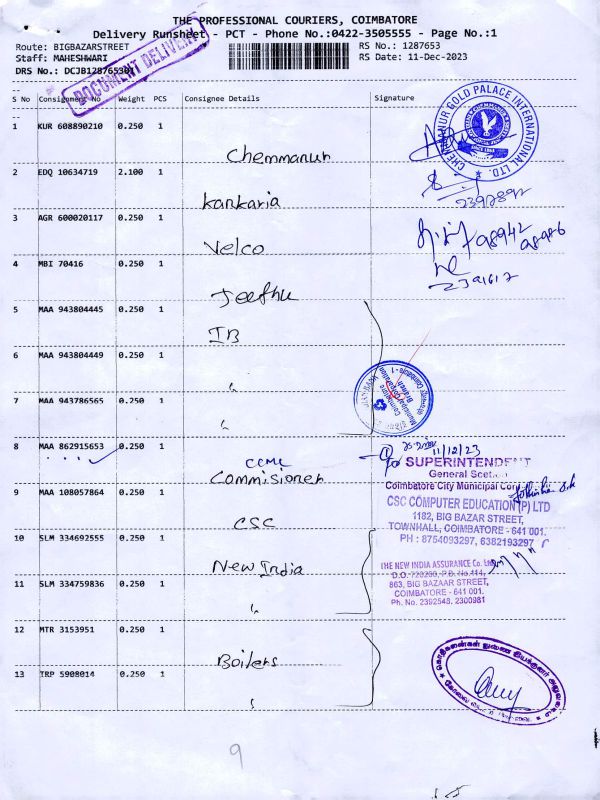 THE PROFESSIONAL COURIERS, COIMBATORE
Delivery Runsheet - PCT - Phone No.:0422-3505555 - Page No.:1
Route: BIGBAZARSTREET RS No.: 1287653
Staff: MAHESHWARI RS Date: 11-Dec-2023
DRS No.: DCJB128765301
DOCUMENT DELIVERY
S No Consignment No Weight PCS Consignee Details Signature
1 KUR 608890210 0.250 1
Chemmanur
CHEMMANUR GOLD PALACE INTERNATIONAL LTD.
2 EDQ 10634719 2.100 1
Kankaria
2397897
3 AGR 600020117 0.250 1
Velco
98942
98986
4 MBI 70416 0.250 1
Jeethu
5 MAA 943804445 0.250 1
IB
6 MAA 943804449 0.250 1
"
7 MAA 943786565 0.250 1
"
Coimbatore
Municipal Corporation
Branch
8 MAA 862915653 0.250 1
CCMC
Commisioner
11/12/23
for SUPERINTENDENT
General Section
Coimbatore City Municipal Corp
9 MAA 108057864 0.250 1
CSC
CSC COMPUTER EDUCATION (P) LTD
1182, BIG BAZAR STREET,
TOWNHALL, COIMBATORE - 641 001.
PH : 8754093297, 6382193297
10 SLM 334692555 0.250 1
New India
THE NEW INDIA ASSURANCE Co. Ltd
11 SLM 334759836 0.250 1
"
863, BIG BAZAAR STREET,
COIMBATORE - 641 001.
Ph. No. 2392548, 2300981
12 MTR 3153951 0.250 1
Boilers
13 TRP 5908014 0.250 1
"
9